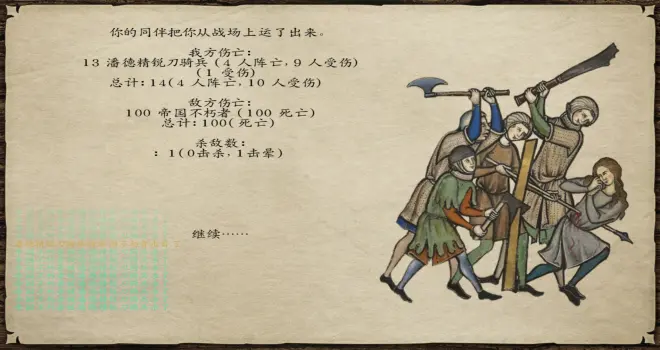 你的同伴把你从战场上运了出来。
我方伤亡：
13 潘德精锐刀骑兵 (4 人阵亡, 9 人受伤)
(1 受伤)
总计: 14(4 人阵亡, 10 人受伤)
敌方伤亡：
100 帝国不朽者 (100 死亡)
总计: 100(死亡)
杀敌数：
: 1(0击杀, 1击晕)
继续……